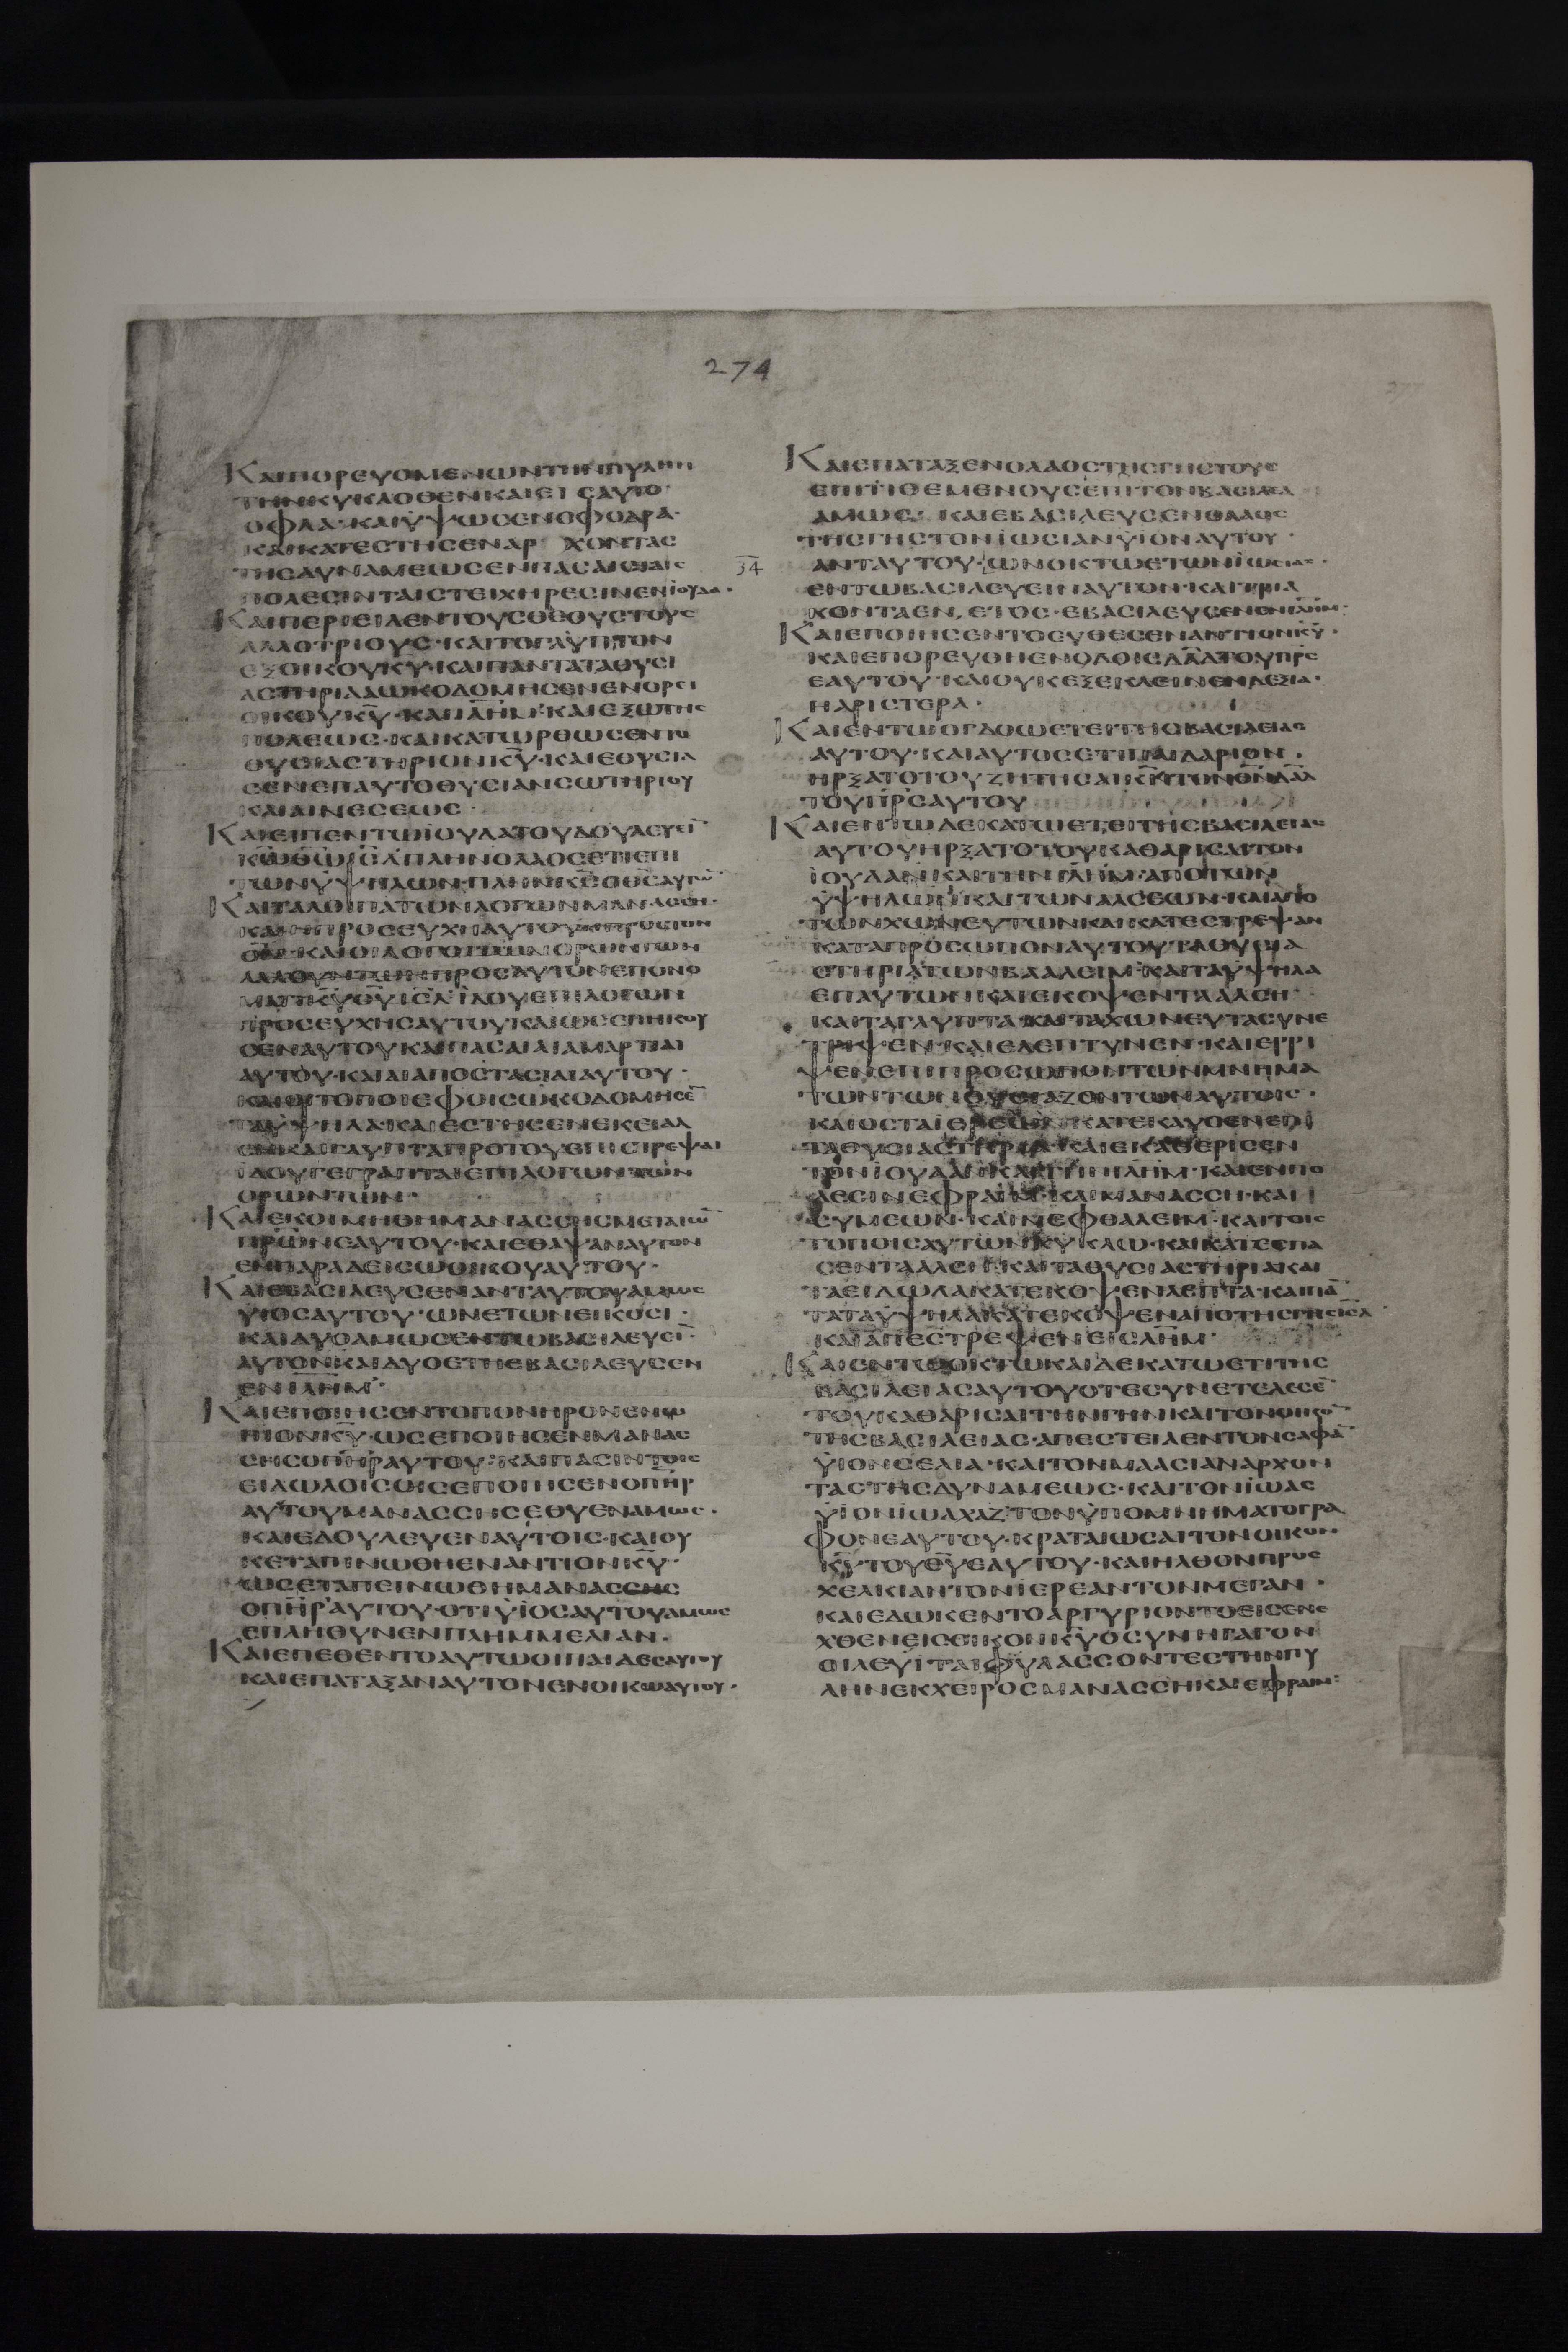 274
ΚΑΙΠΟΡΕΥΟΜΕΝΩΝΤΗΝΠΥΛΗΝ
ΤΗΝΚΥΚΛΟΘΕΝΚΑΙΕΙΣΑΥΤΟ
ΟΦΛΑ·ΚΑΙΫΨΩCΕΝCΦΟΔΡΑ·
ΚΑΙΚΑΤΕCΤΗCΕΝΑΡ ΧΟΝΤΑC
ΤΗCΔΥΝΑΜΕΩCΕΝΠΑCΑΙCΤΑΙC
ΠΟΛΕCΙΝΤΑΙCΤΕΙΧΗΡΕCΙΝΕΝΙΟΥΔΑ·
ΚΑΙΠΕΡΙΕΙΛΕΝΤΟΥCΘΕΟΥCΤΟΥC
ΑΛΛΟΤΡΙΟΥC·ΚΑΙΤΟΓΛΥΠΤΟΝ
ΕΞΟΙΚΟΥΚ̅Υ̅·ΚΑΙΠΑΝΤΑΤΑΘΥCΙ
ΑCΤΗΡΙΑΑΩΚΟΔΟΜΗCΕΝΕΝΟΡΕΙ
ΟΙΚΟΥΚ̅Υ̅·ΚΑΙΙ̅Λ̅Η̅Μ̅·ΚΑΙΕΞΩΤΗC
ΠΟΛΕΩC·ΚΑΙΚΑΤΩΡΘΩCΕΝΤΟ
ΘΥCΙΑCΤΗΡΙΟΝΚ̅Υ̅·ΚΑΙΕΘΥCΙΑ
CΕΝΕΠΑΥΤΟΘΥCΙΑΝCΩΤΗΡΙΟΥ
ΚΑΙΑΙΝΕCΕΩC
ΚΑΙΕΙΠΕΝΤΩΪΟΥΔΑΤΟΥΔΟΥΛΕΥΕΙ̅
Κ̅Ω̅Θ̅Ω̅Ι̅Η̅Λ̅ΠΛΗΝΟΛΑΟCΕΤΙΕΠΙ
ΤΩΝΫΨΗΛΩΝ·ΠΛΗΝΚ̅C̅ΟΘ̅C̅ΑΥΤΩ̅
ΚΑΙΤΑΛΟΙΠΑΤΩΝΛΟΓΩΝΜΑΝΑCCΗ·
ΚΑΙΗΠΡΟCΕΥΧΗΑΥΤΟΥΗΠΡΟCΤΟΝ
Θ̅Ν̅·ΚΑΙΟΙΛΟΓΟΙΤΩΝΟΡΩΝΤΩΝ
ΛΑΛΟΥΝΤΩΝΠΡΟCΑΥΤΟΝΕΠΟΝΟ
ΜΑΤΙΚ̅Υ̅Θ̅Υ̅Ι̅Η̅Λ̅ΪΔΟΥΕΠΙΛΟΓΩΝ
ΠΡΟCΕΥΧΗCΑΥΤΟΥΚΑΙΩCΕΠΗΚΟΥ
CΕΝΑΥΤΟΥΚΑΙΠΑCΑΙΑΙΑΜΑΡΤΙΑΙ
ΑΥΤΟΥ·ΚΑΙΑΙΑΠΟCΤΑCΙΑΙΑΥΤΟΥ·
ΚΑΙΟΙΤΟΠΟΙΕΦΟΙCΩΚΟΔΟΜΗCΕ̅
ΤΑΫΨΗΛΑ·ΚΑΙΕCΤΗCΕΝΕΚΕΙΑΛ
CΗΚΑΙΓΛΥΠΤΑΠΡΟΤΟΥΕΠΙCΤΡΕΨΑΙ
ΪΔΟΥΓΕΓΡΑΠΤΑΙΕΠΙΛΟΓΩΝΤΩΝ
ΟΡΩΝΤΩΝ·
ΚΑΙΕΚΟΙΜΗΘΗΜΑΝΑCCΗCΜΕΤΑΤΩ̅
ΠΡ̅Ω̅ΝΕΑΥΤΟΥ·ΚΑΙΕΘΑΨΑΝΑΥΤΟΝ
ΕΝΠΑΡΑΔΕΙCΩΟΙΚΟΥΑΥΤΟΥ·
ΚΑΙΕΒΑCΙΛΕΥCΕΝΑΝΤΑΥΤΟΥΑΜΩC
ΫΙΟCΑΥΤΟΥ·ΩΝΕΤΩΝΕΙΚΟCΙ·
ΚΑΙΔΥΟΑΜΩCΕΝΤΩΒΑCΙΛΕΥΕΙ̅
ΑΥΤΟΝΚΑΙΔΥΟΕΤΗΕΒΑCΙΛΕΥCΕΝ
ΕΝΙ̅Λ̅Η̅Μ̅·
ΚΑΙΕΠΟΙΗCΕΝΤΟΠΟΝΗΡΟΝΕΝΩ
ΠΙΟΝΚ̅Υ̅·ΩCΕΠΟΙΗCΕΝΜΑΝΑC
CΗCΟΠ̅Η̅Ρ̅ΑΥΤΟΥ·ΚΑΙΠΑCΙΝΤΟΙC
ΕΙΔΩΛΟΙCΟΙCΕΠΟΙΗCΕΝΟΠ̅Η̅Ρ̅
ΑΥΤΟΥΜΑΝΑCCΗCΕΘΥΕΝΑΜΩC·
ΚΑΙΕΔΟΥΛΕΥΕΝΑΥΤΟΙC·ΚΑΙΟΥ
ΚΕΤΑΠΙΝΩΘΗΕΝΑΝΤΙΟΝΚ̅Υ̅·
ΩCΕΤΑΠΕΙΝΩΘΗΜΑΝΑCCΗC
ΟΠ̅Η̅Ρ̅ΑΥΤΟΥ·ΟΤΙΫΙΟCΑΥΤΟΥΑΜΩC
ΕΠΛΗΘΥΝΕΝΠΛΗΜΜΕΛΙΑΝ·
ΚΑΙΕΠΕΘΕΝΤΟΑΥΤΩΟΙΠΑΙΔΕCΑΥΤΟΥ
ΚΑΙΕΠΑΤΑΞΑΝΑΥΤΟΝΕΝΟΙΚΩΑΥΤΟΥ·
ΚΑΙΕΠΑΤΑΞΕΝΟΛΑΟCΤΗCΓΗCΤΟΥC
ΕΠΙΤΙΘΕΜΕΝΟΥCΕΠΙΤΟΝΒΑCΙΛΕΑ
ΑΜΩC· ΚΑΙΕΒΑCΙΛΕΥCΕΝΟΛΑΟC
ΤΗCΓΗCΤΟΝΪΩCΙΑΝΫΙΟΝΑΥΤΟΥ·
34 ΑΝΤΑΥΤΟΥ·ΩΝΟΚΤΩΕΤΩΝΪΩCΙΑC·
ΕΝΤΩΒΑCΙΛΕΥΕΙΝΑΥΤΟΝ·ΚΑΙΤΡΙΑ
ΚΟΝΤΑΕΝ,ΕΤΟC·ΕΒΑCΙΛΕΥCΕΝΕΝΙ̅Λ̅Η̅Μ̅·
ΚΑΙΕΠΟΙΗCΕΝΤΟΕΥΘΕCΕΝΑΝΤΙΟΝΚ̅Υ̅·
ΚΑΙΕΠΟΡΕΥΘΗΕΝΟΔΟΙCΔ̅Α̅Δ̅ΤΟΥΠ̅Ρ̅C̅
ΕΑΥΤΟΥ·ΚΑΙΟΥΚΕΞΕΚΛΕΙΝΕΝΔΕΞΙΑ·
ΗΑΡΙCΤΕΡΑ·
ΚΑΙΕΝΤΩΟΓΔΟΩΕΤΕΙΤΗCΒΑCΙΛΕΙΑC
ΑΥΤΟΥ·ΚΑΙΑΥΤΟCΕΤΙΠΑΙΔΑΡΙΟΝ·
ΗΡΞΑΤΟΤΟΥΖΗΤΗCΑΙΚ̅Ν̅ΤΟΝΘ̅Ν̅Δ̅Α̅Δ̅
ΤΟΥΠ̅Ρ̅C̅ΑΥΤΟΥ
ΚΑΙΕΝΤΩΔΕΚΑΤΩΕΤΙΤΗCΒΑCΙΛΕΙΑC
ΑΥΤΟΥΗΡΞΑΤΟΤΟΥΚΑΘΑΡΙCΑΙΤΟΝ
ΪΟΥΔΑΝΚΑΙΤΗΝΙ̅Λ̅Η̅Μ̅·ΑΠΟΤΩΝ
ΫΨΗΛΩΝ·ΚΑΙΤΩΝΑΛCΕΩΝ·ΚΑΙΑΠΟ
ΤΩΝΧΩΝΕΥΤΩΝΚΑΙΚΑΤΕCΤΡΕΨΑΝ
ΚΑΤΑΠΡΟCΩΠΟΝΑΥΤΟΥΤΑΘΥCΙΑ
CΤΗΡΙΑΤΩΝΒΑΑΛΕΙΜ·ΚΑΙΤΑΥΨΗΛΑ
ΕΠΑΥΤΩΝΚΑΙΕΚΟΨΕΝΤΑΑΛCΗ·
ΚΑΙΤΑΓΛΥΠΤΑ·ΚΑΙΤΑΧΩΝΕΥΤΑCΥΝΕ
ΤΡΙΨΕΝ·ΚΑΙΕΛΕΠΤΥΝΕΝ·ΚΑΙΕΡΡΙ
ΨΕΝΕΠΙΠΡΟCΩΠΟΝΤΩΝΜΝΗΜΑ
ΤΩΝΤΩΝΘΥCΙΑΖΟΝΤΩΝΑΥΤΟΙC·
ΚΑΙΟCΤΑΙΕΡΕΩΝΚΑΤΕΚΑΥCΕΝΕΠΙ
ΤΑΘΥCΙΑCΤΗΡΙΑ·ΚΑΙΕΚΑΘΕΡΙCΕΝ
ΤΟΝΙΟΥΔΑΝΚΑΙΤΗΝΙ̅Λ̅Η̅Μ̅·ΚΑΙΕΝΠΟ
ΛΕCΙΝΕΦΡΑΙΜ·ΚΑΙΜΑΝΑCCΗ·ΚΑΙ
CΥΜΕΩΝ·ΚΑΙΝΕΦΘΑΛΕΙΜ·ΚΑΙΤΟΙC
ΤΟΠΟΙCΑΥΤΩΝΚΥΚΛΩ·ΚΑΙΚΑΤΕCΠΑ
CΕΝΤΑΑΛCΗ·ΚΑΙΤΑΘΥCΙΑCΤΗΡΙΑΚΑΙ
ΤΑΕΙΔΩΛΑΚΑΤΕΚΟΨΕΝΛΕΠΤΑ·ΚΑΙΠΑ̅
ΤΑΤΑΥΨΗΛΑΚΑΤΕΚΟΨΕΝΑΠΟΤΗCΓΗCΙ̅C̅Λ̅
ΚΑΙΑΠΕCΤΡΕΨΕΝΕΙCΙ̅Λ̅Η̅Μ̅·
ΚΑΙΕΝΤΩΟΚΤΩΚΑΙΔΕΚΑΤΩΕΤΙΤΗC
ΒΑCΙΛΕΙΑCΑΥΤΟΥΟΤΕCΥΝΕΤΕΛΕCΕ̅
ΤΟΥΚΑΘΑΡΙCΑΙΤΗΝΓΗΝΚΑΙΤΟΝΟΙΚΟ̅
ΤΗCΒΑCΙΛΕΙΑC·ΑΠΕCΤΕΙΛΕΝΤΟΝCΑΦΑ̅
ΫΙΟΝCΕΛΙΑ·ΚΑΙΤΟΝΜΑΑCΙΑΝΑΡΧΟΝ
ΤΑCΤΗCΔΥΝΑΜΕΩC·ΚΑΙΤΟΝΪΩΑC
ΫΙΟΝΪΩΑΧΑΖΤΟΝΫΠΟΜΝΗΜΑΤΟΓΡΑ
ΦΟΝΕΑΥΤΟΥ·ΚΡΑΤΑΙΩCΑΙΤΟΝΟΙΚΟΝ
Κ̅Υ̅ΤΟΥΘ̅Υ̅ΕΑΥΤΟΥ·ΚΑΙΗΛΘΟΝΠΡΟC
ΧΕΛΚΙΑΝΤΟΝΪΕΡΕΑΝΤΟΝΜΕΓΑΝ·
ΚΑΙΕΔΩΚΕΝΤΟΑΡΓΥΡΙΟΝΤΟΕΙCΕΝΕ
ΧΘΕΝΕΙCΟΙΚΟΝΚ̅Υ̅ΟCΥΝΗΓΑΓΟΝ
ΟΙΛΕΥΙΤΑΙΦΥΛΑCCΟΝΤΕCΤΗΝΠΥ
ΛΗΝΕΚΧΕΙΡΟCΜΑΝΑCCΗΚΑΙΕΦΡΑΙΜ·